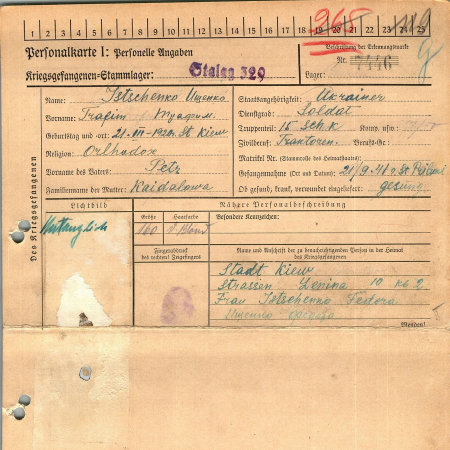 1 2 3 4 5 6 7 8 9 10 11 12 13 14 15 16 17 18 19 20 21 22 23 24 25
965
Personalkarte I: Personelle Angaben
Beschriftung der Erkennungsmarke
Kriegsgefangenen-Stammlager: Stalag 329
Nr. 7446
Lager:
Des Kriegsgefangenen
Name: Istschenko Ищенко
Vorname: Trafim Трафим.
Geburtstag und -ort: 21.III-1920. St Kiew
Religion: Orthodox
Vorname des Vaters: Petr
Familienname der Mutter: Kaidalowa
Staatsangehörigkeit: Ukrainer
Dienstgrad: Soldat
Truppenteil: 15 Sch.K Komp. usw.:
Zivilberuf: Traktoren.
Matrikel Nr. (Stammrolle des Heimatstaates):
Gefangennahme (Ort und Datum): 21/9.41
Ob gesund, krank, verwundet eingeliefert: gesund
Lichtbild
Nähere Personalbeschreibung
Größe
Haarfarbe
Besondere Kennzeichen:
160
Blond
Fingerabdruck
des rechten! Zeigefingers
Name und Anschrift der zu benachrichtigenden Person in der Heimat
des Kriegsgefangenen
Stadt Kiew
Strassen Lenina 10 кв 2
Frau Istschenko Fedora
Ищенко Федора
Wenden!